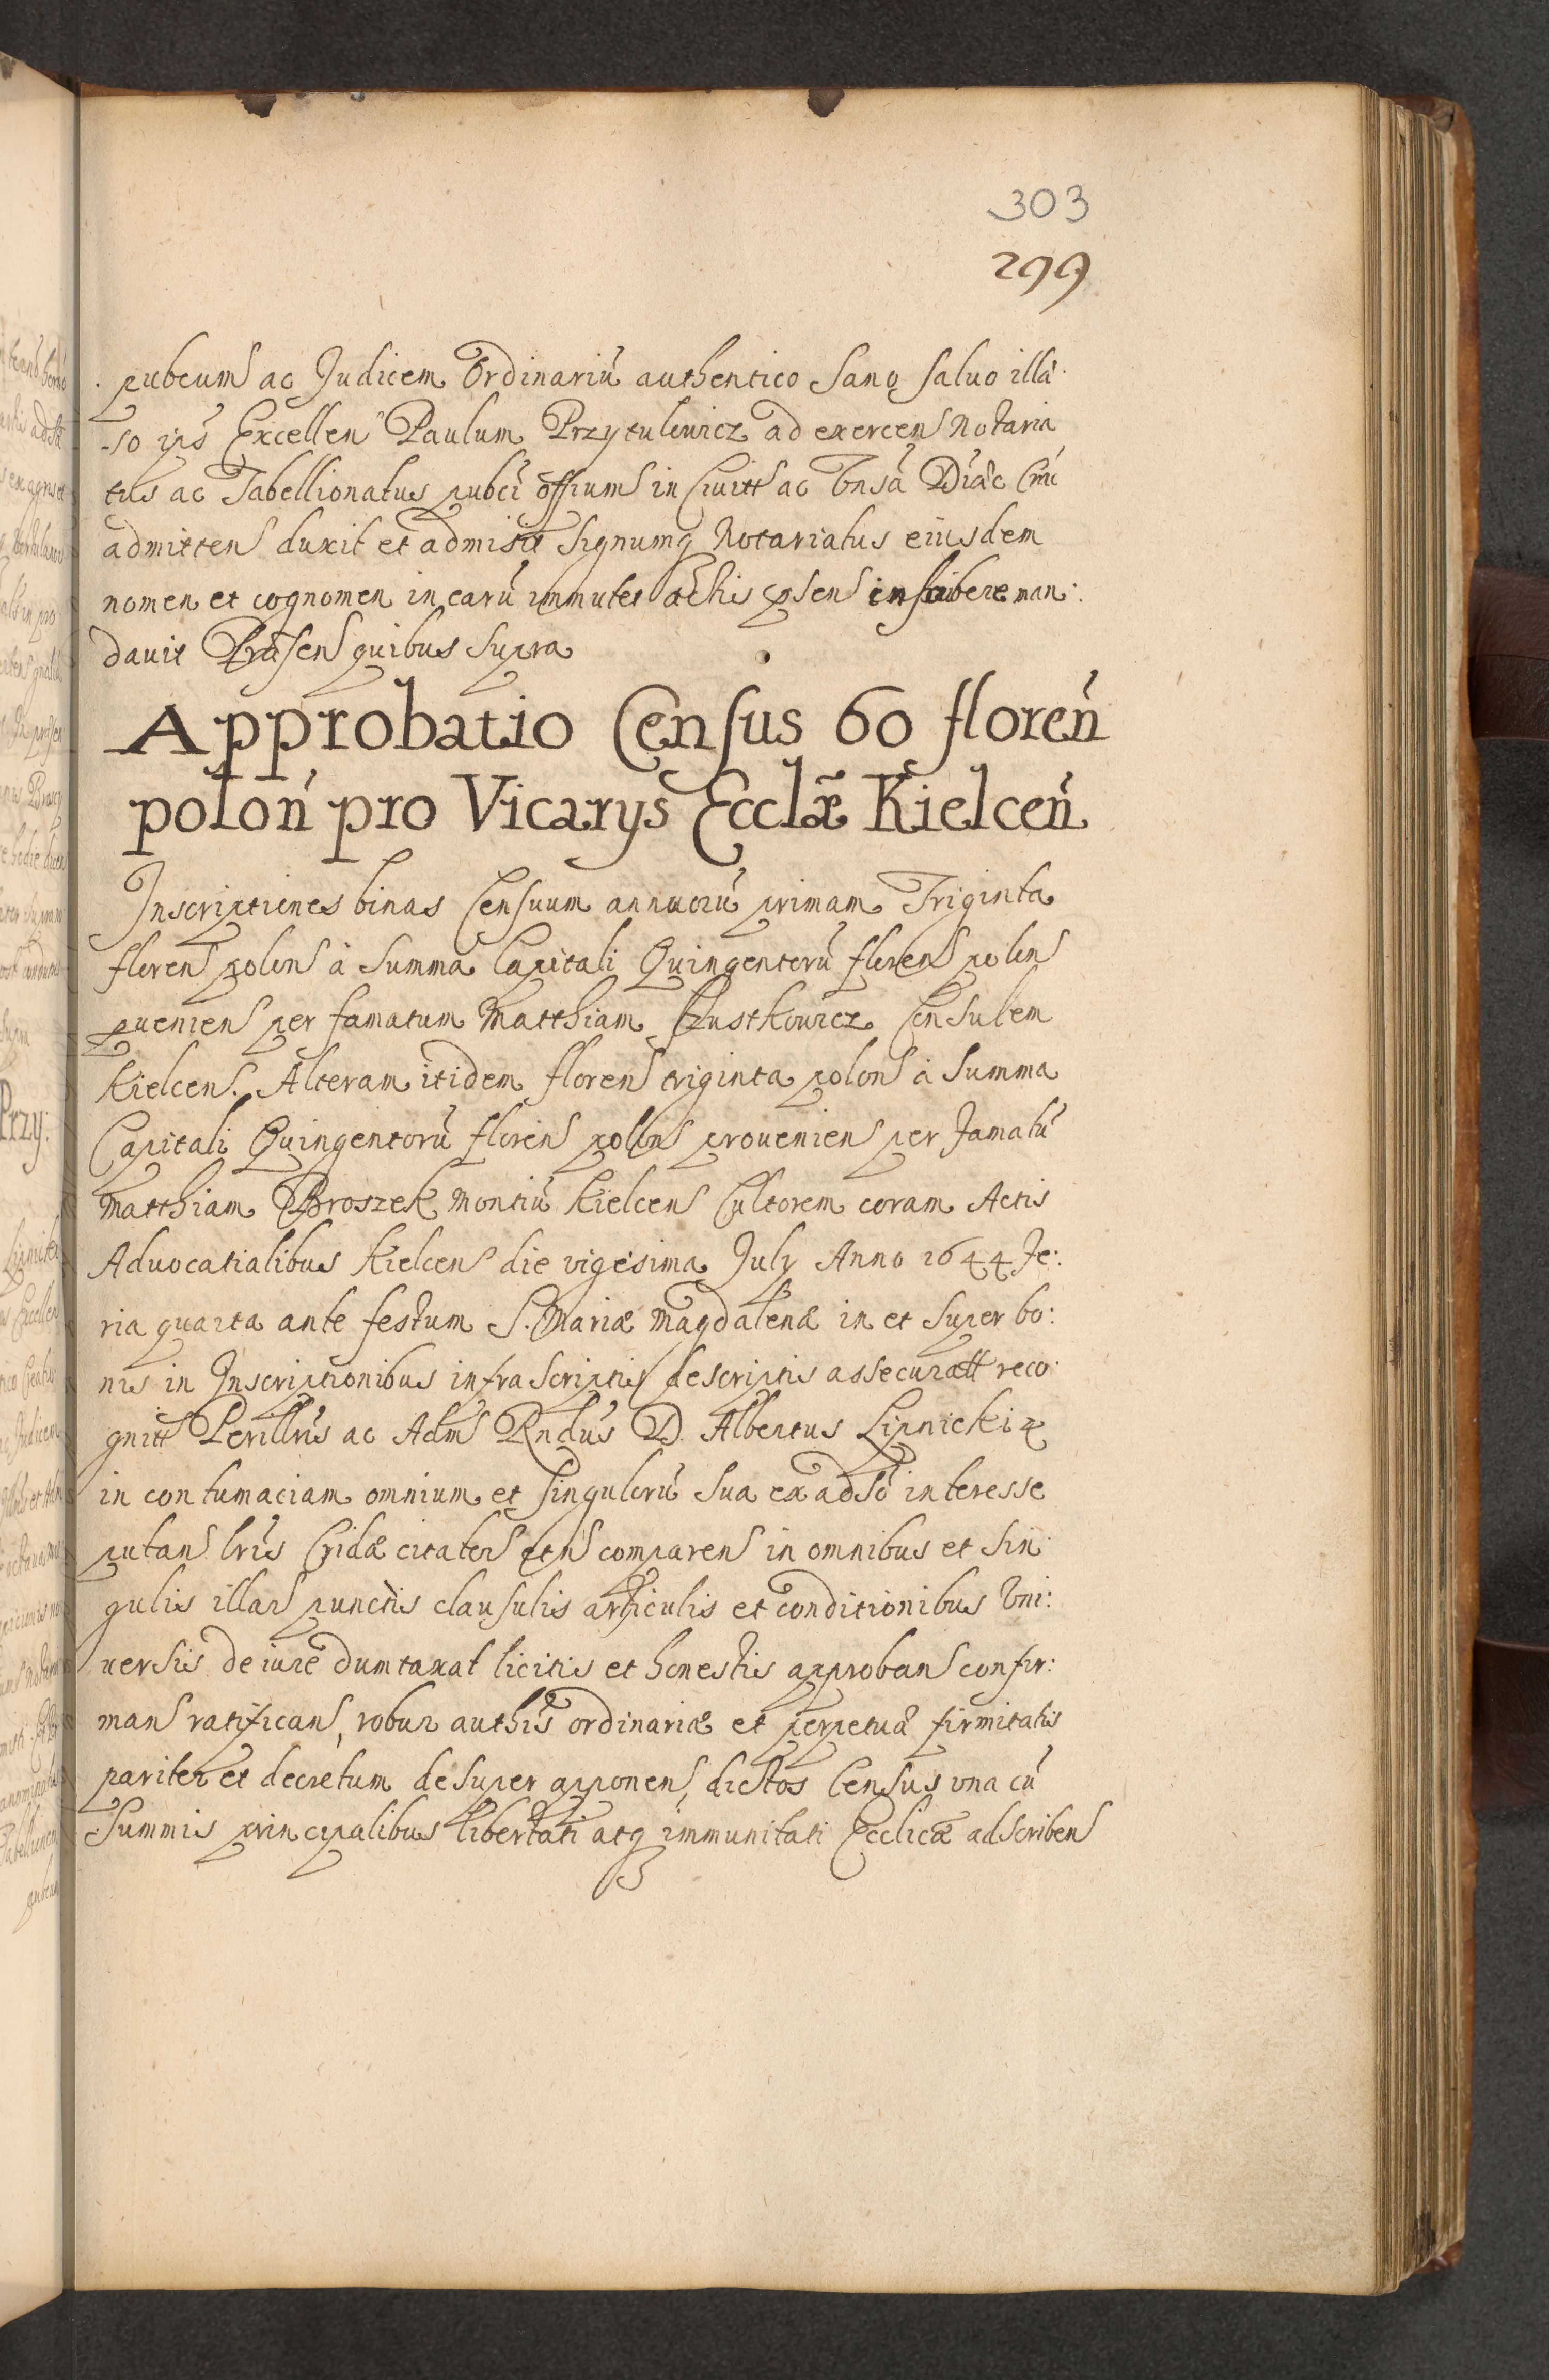 303
299
pubcum ac Judicem Ordinariū authentico Sano saluo illæ
so ips Excellen Paulum Przytulowicz ad exercen Notaria
tus ac Tabellionatus pubci offium in Ciuitt ac Diac
admitten duxit et admisit Signumq Notariatus eiusdem
nomen et cognomen in earū actis psen inscribere man:
dauit Præsen quibus supra
Approbatio Census 60 floreń
poloń pro Vicarys Ecclæ Kielceń
Inscriptiones binas Censuum annuorū primam Triginta
floren polon à Summa Capitali Quingentorū floren polon
puenien per famatum Matthiam Czustkowicz Consulem
Kielcen. Alteram itidem floren triginta polon à Summa
Capitali Quingentorū floren polon prouenien per famatū
Matthiam Broszek Montiū Kielcen Cultorem coram Actis
Aduocatialibus Kielcen die vigesima July Anno 1644 Fe:
ria quarta ante festum S. Mariæ Magdalenæ in et super bo:
nis in Inscriptionibus infrascriptis descriptis assecuratt reco
gnitt Perillris ac Adm Rndus D. Albertus Lipnicki
in contumaciam omnium et singulorū sua ex adso interesse
putan lris Cridæ citator et n comparen in omnibus et sin
gulis illar punctis clausulis articulis et conditionibus Vni:
uersis de iure dumtaxat licitis et honestis approban confir:
man ratifican, robur authis ordinariæ et perpetuæ firmitatis
pariter et decretum desuper apponen, dictos Census vna cū
Summis principalibus libertati atq immunitati Ecclicæ adscriben